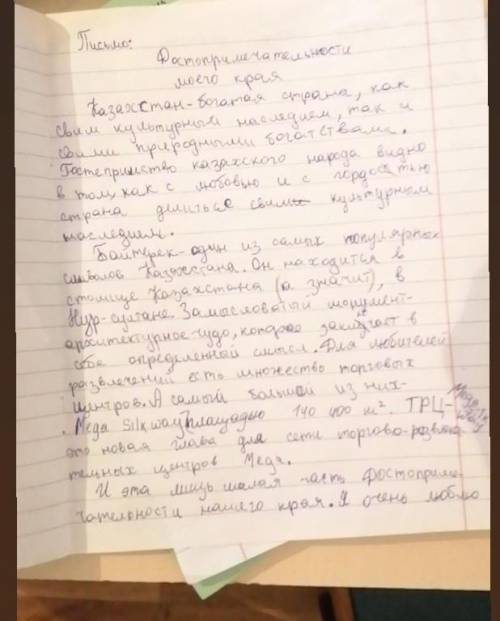 Письмо:
Достопримечательности
моего края
Казахстан-богатая страна, как
своим культурным наследием, так и
своими природными богатствами.
Гостепримство казахского народа видно
в том, как с любовью и с гордостью
страна делиться своим культурным
наследием.
Байтерек-один из самых популярных
символов Казахстана. Он находится в
столице Казахстана (а значит), в
Нур-султане. Замысловатый монумент-
архитектурное-чудо, которое заключает в
себе определенный смысл. Для любителей
развлечений есть множество торговых
центров. А самый большой из них-
Mega Silkway площадью 140 000 м². ТРЦ-
это новая глава для сети торгово-развлека
тельных центров Мега.
И эта лишь малая часть достоприме-
чательности нашего края. Я очень люблю